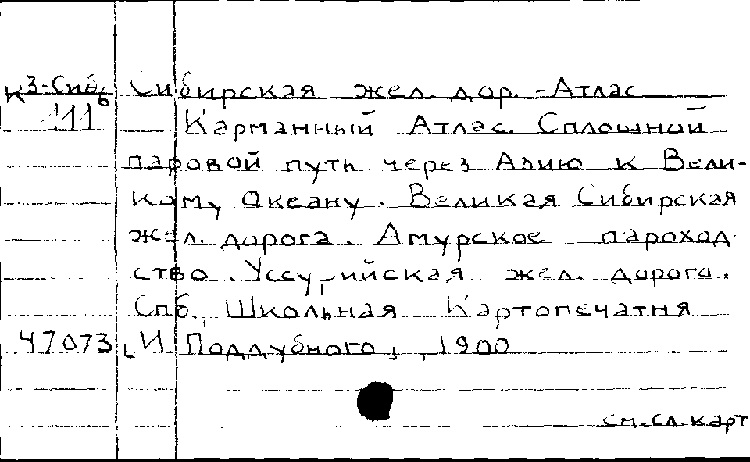 К3-Сиб. Сибирская жел. дор. - Атлас
б
111 Карманный Атлас. Сплошной
паровой путь через Азию к Вели-
кому Океану. Великая Сибирская
жел. дорога. Амурское пароход-
ство. Уссурийская жел. дорога.
Спб., Школьная Картопечатня
47073 И Поддубного, 1900
см. сл. карт